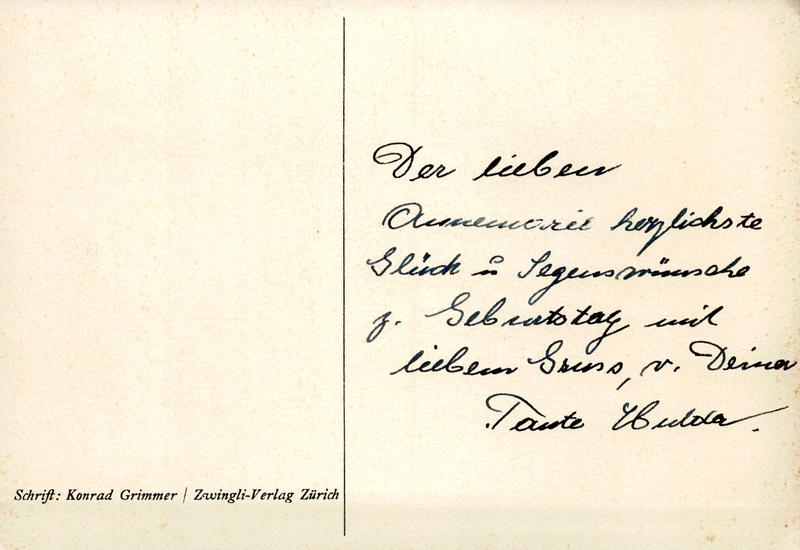 Der lieben
Annemarie herzlichste
Glück u Segenswünsche
z. Geburtstag mit
liebem Gruss, v. Deiner
Tante Hulda.
Schrift: Konrad Grimmer / Zwingli-Verlag Zürich